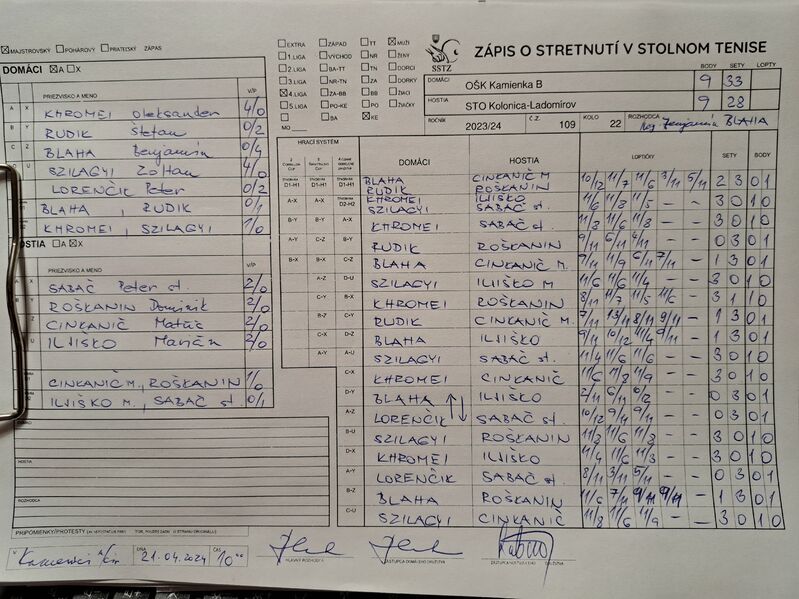 MAJSTROVSKÝ POHÁROVÝ PRIATEĽSKÝ ZÁPAS
DOMÁCI A X
PRIEZVISKO A MENO V/P
A X KHROMEI Oleksander 4/0
B Y RUDIK Štefan 0/2
C Z BLAHA Benjamín 0/4
SZILAGYI Zoltan 4/0
LORENČIK Peter 0/2
BLAHA , RUDIK 0/1
KHROMEI , SZILAGYI 1/0
HOSTIA A X
PRIEZVISKO A MENO V/P
SABAČ Peter st. 2/0
ROŠKANIN Dominik 2/0
CINKANIČ Matúš 2/0
ILJIŠKO Marián 2/0
CINKANIČ M., ROŠKANIN 1/0
ILJIŠKO M., SABAČ st. 0/1
DOMÁCI
HOSTIA
ROZHODCA
PRIPOMIENKY/PROTESTY
DŇA 21.04.2024 ČAS 10 00
HLAVNÝ ROZHODCA
EXTRA ZÁPAD TT MUŽI
1.LIGA VÝCHOD NR ŽENY
2.LIGA BA-TT TN DORCI
3.LIGA NR-TN ZA DORKY
4.LIGA ZA-BB BB ŽIACI
5.LIGA PO-KE PO ŽIAČKY
BA KE
MO
SSTZ
ZÁPIS O STRETNUTÍ V STOLNOM TENISE
BODY SETY LOPTY
DOMÁCI OŠK Kamienka B 9 33
HOSTIA STO Kolonica-Ladomírov 9 28
ROČNÍK 2023/24 Č.Z. 109 KOLO 22 ROZHODCA Benjamín BLAHA
HRACÍ SYSTÉM
DOMÁCI HOSTIA LOPTIČKY SETY BODY
D1-H1 D1-H1 D1-H1 BLAHA RUDIK CINKANIČ M ROŠKANIN 10/12 11/7 11/6 3/11 5/11 2 3 0 1
A-X A-X D2-H2 KHROMEI SZILAGYI ILJIŠKO SABAČ st. 11/6 11/8 11/5 – – 3 0 1 0
B-Y B-Y A-X KHROMEI SABAČ st. 11/8 11/6 11/8 – – 3 0 1 0
A-Y C-Z B-Y RUDIK ROŠKANIN 9/11 6/11 4/11 – – 0 3 0 1
B-X A-X C-Z BLAHA CINKANIČ M. 9/11 11/9 6/11 7/11 – 1 3 0 1
A-Z D-U SZILAGYI ILJIŠKO M 11/6 11/6 11/4 – – 3 0 1 0
C-Y B-X KHROMEI ROŠKANIN 8/11 11/7 11/5 11/6 – 3 1 1 0
B-X RUDIK CINKANIČ M. 7/11 13/11 8/11 9/11 – 1 3 0 1
C-Z D-Z BLAHA ILJIŠKO 9/11 10/12 11/4 9/11 – 1 3 0 1
A-Y A-U SZILAGYI SABAČ st. 11/4 11/6 11/6 – – 3 0 1 0
C-X KHROMEI CINKANIČ 11/6 11/8 11/9 – – 3 0 1 0
D-Y BLAHA ILJIŠKO 2/11 6/11 10/12 – – 0 3 0 1
A-Z LORENČIK SABAČ st. 10/12 9/11 9/11 – – 0 3 0 1
B-U SZILAGYI ROŠKANIN 11/8 11/6 11/3 – – 3 0 1 0
D-X KHROMEI ILJIŠKO 11/4 11/6 11/3 – – 3 0 1 0
A-Y LORENČIK SABAČ st. 8/11 3/11 5/11 – – 0 3 0 1
B-Z BLAHA ROŠKANIN 11/6 7/11 9/11 9/11 – 1 3 0 1
C-U SZILAGYI CINKANIČ 11/8 11/6 11/9 – – 3 0 1 0